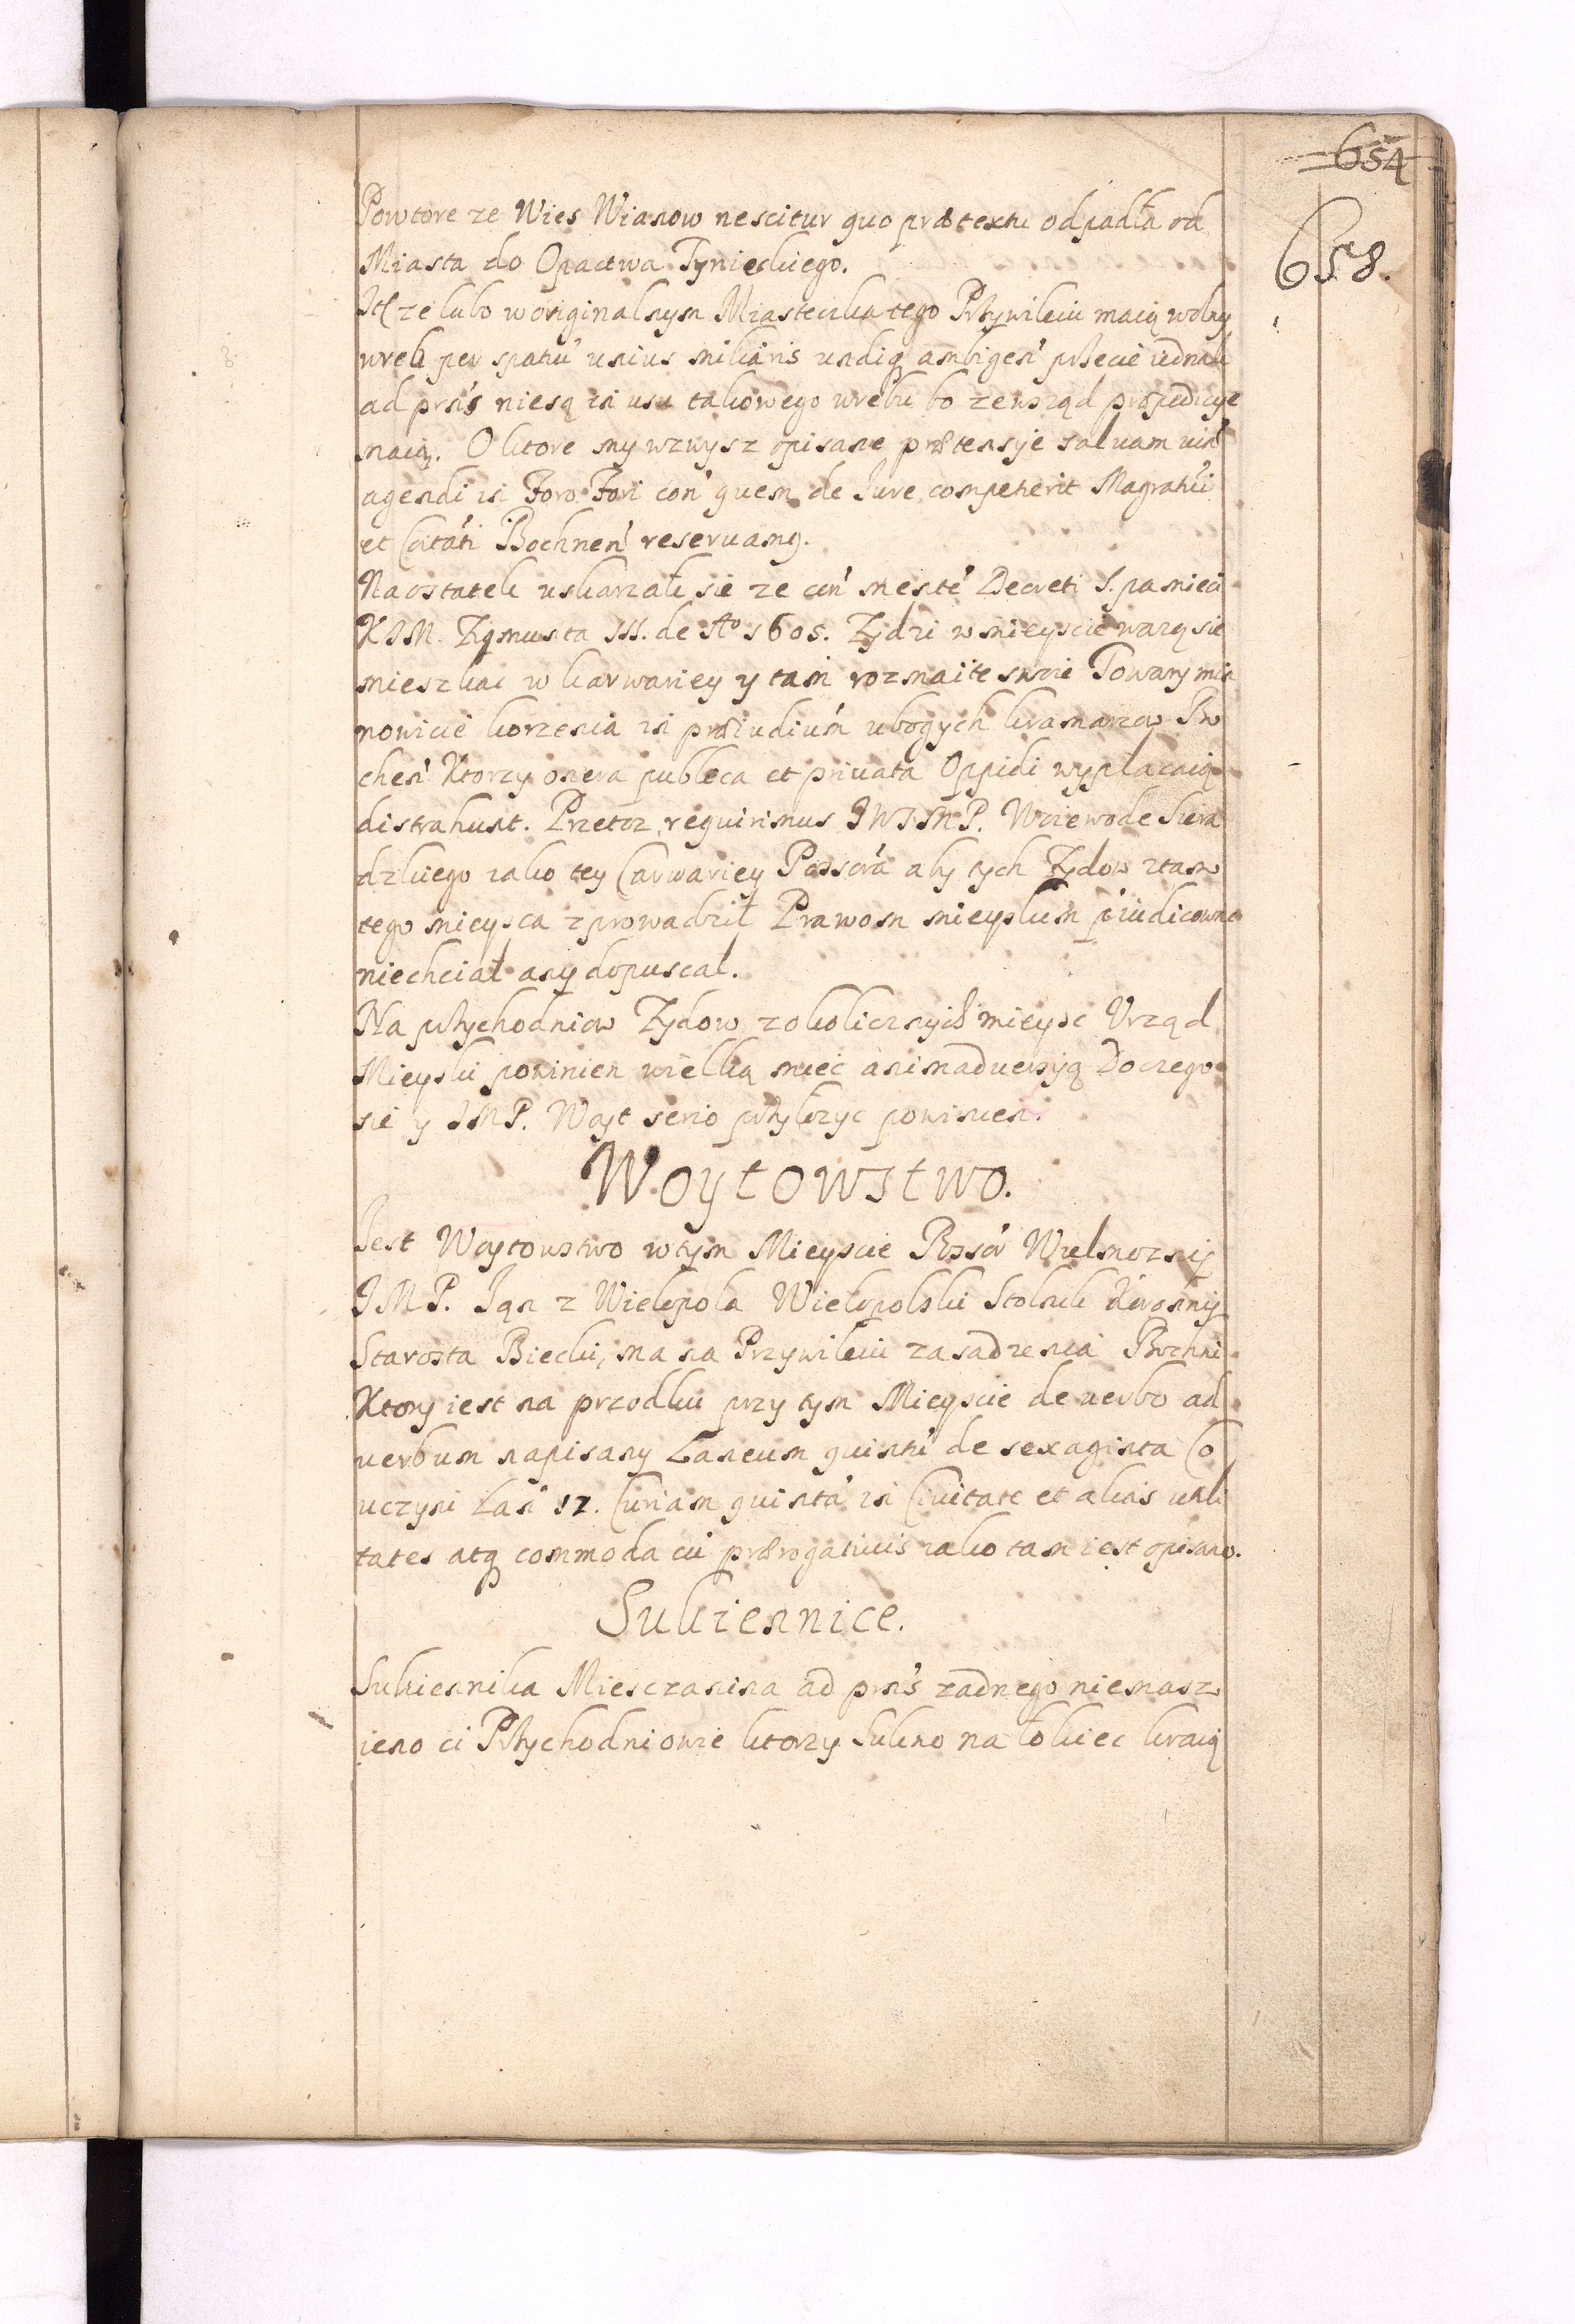 654
658.
Powtore ze Wies Wianow nescitur quo prætextu odpadła od
Miasta do Opactwa Tynieckiego.
Itͫ ze lubo w originalnym Miasteczka tego Przywileiu maią wolny
wreb per spatiū unius miliaris undiqꝫ ambigen̄ przecie iednak
ad prn̄s niesą in usu takowego wrebu bo zewsząd propedicye
maią. O ktore my wzwysz opisane prætensye salvam viā
agendi in Foro Fori con̄ quem de Iure competierit Magratui
et Cōtati Bochnen̄ reservamꝯ.
Na ostatek uskarzali sie ze con̄ mentē Decreti S. pamieci
K I M. Zygmunta III. de Aͦ 1605. Zydzi w miescie wazą sie
mieszkac w karwariey y tam rozmaite swoie Towary mia
nowicie korzenia in præiudiciū ubogych kramarzow Bo
chen̄ Ktorzy onera publica et privata Oppidi wypłacaią
distrahunt. Przetoz requirimus J W J M P. Woiewode Siera
dzkiego iako tey Carwariey Possora aby tych Zydow ztam
tego mieysca zprowadził Prawom mieyskim piudicowac
niechciał any dopuscał.
Na przychodniow Zydow z okolicznych mieysc Urząd
Mieyski powinien wielką miec animadversyą Do czego
sie y J M P. Woyt serio przylozyc powinien.
Woytowstwo.
Jest Woytowstwo w tym Mieyscie Possor Wielmozny
J M P. Ian z Wielopola Wielopolski Stolnik Koronny
Starosta Biecki, ma na Przywileiu zasadzenia Bochni
Ktory iest na przodku przy tym Mieyscie de verbo ad
verbum napisany Laneum quintū de sexaginta Co
uczyni Lan̄ 12. Curiam quintā in Civitate et alias utili
tates atqꝫ commoda cū prærogativis iako tam iest opisano.
Sukiennice.
Sukiennika Miesczanina ad prn̄s zadnego niemasz
ieno ci Przychodniowie ktorzy Sukno na łokiec kraią